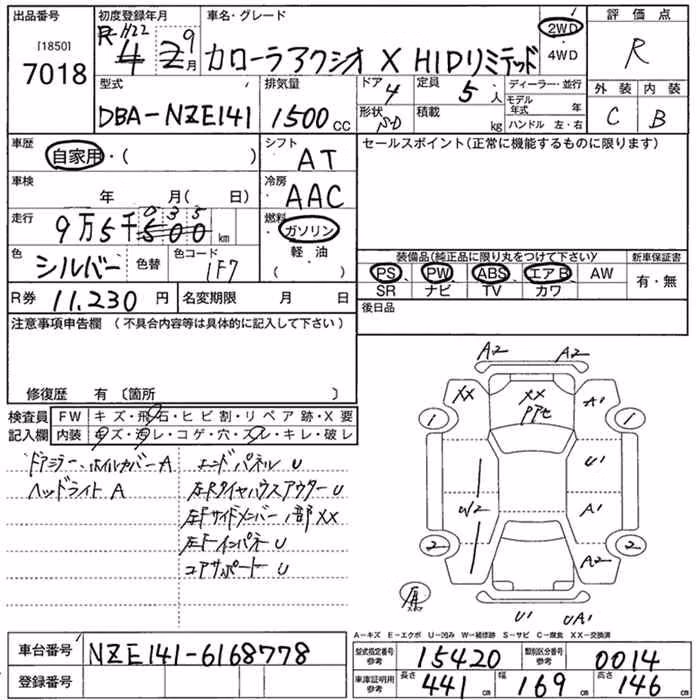 出品番号 初度登録年月 車名・グレード 評価点
[1850] 7018
H22 9月 カローラアクシオ X HIDリミテッド 2WD 4WD R
型式 排気量 ドア 定員 ディーラー・並行 外装 内装
DBA-NZE141 1500cc 4 5人 モデル年式 年 C B
形状 積載 kg ハンドル 左・右
車歴 シフト セールスポイント(正常に機能するものに限ります)
自家用・( ) AT
車検 冷房
年 月(日) AAC
走行 燃料
9万5千035 km ガソリン
色 色替 色コード 軽油
シルバー 1F7 ( )
装備品(純正品に限り丸をつけて下さい) 新車保証書
PS PW ABS エアB AW 有・無
SR ナビ TV カワ
R券 11,230円 名変期限 月 日 後日品
注意事項申告欄 (不具合内容等は具体的に記入して下さい)
修復歴 有 〔箇所 〕
検査員 FW キズ・飛石・ヒビ割・リペア跡・X要
記入欄 内装 キズ・汚レ・コゲ・穴・スレ・キレ・破レ
ドアミラー・ホイルカバーA エンドパネル U
ヘッドライト A 左Rタイヤハウスアウター U
左Fサイドメンバー 1部XX
左Fインパネ U
コアサポート U
A2 A2
XX XX A1
1 1
U1
W2 A1
2 A2 2
U1 UA1
A-キズ E-エクボ U-凹み W-補修跡 S-サビ C-腐食 XX-交換済
車台番号 NZE141-6168778
登録番号
型式指定番号 参考 15420 類別区分番号 参考 0014
車庫証明用 参考 長さ 441cm 幅 169cm 高さ 146cm